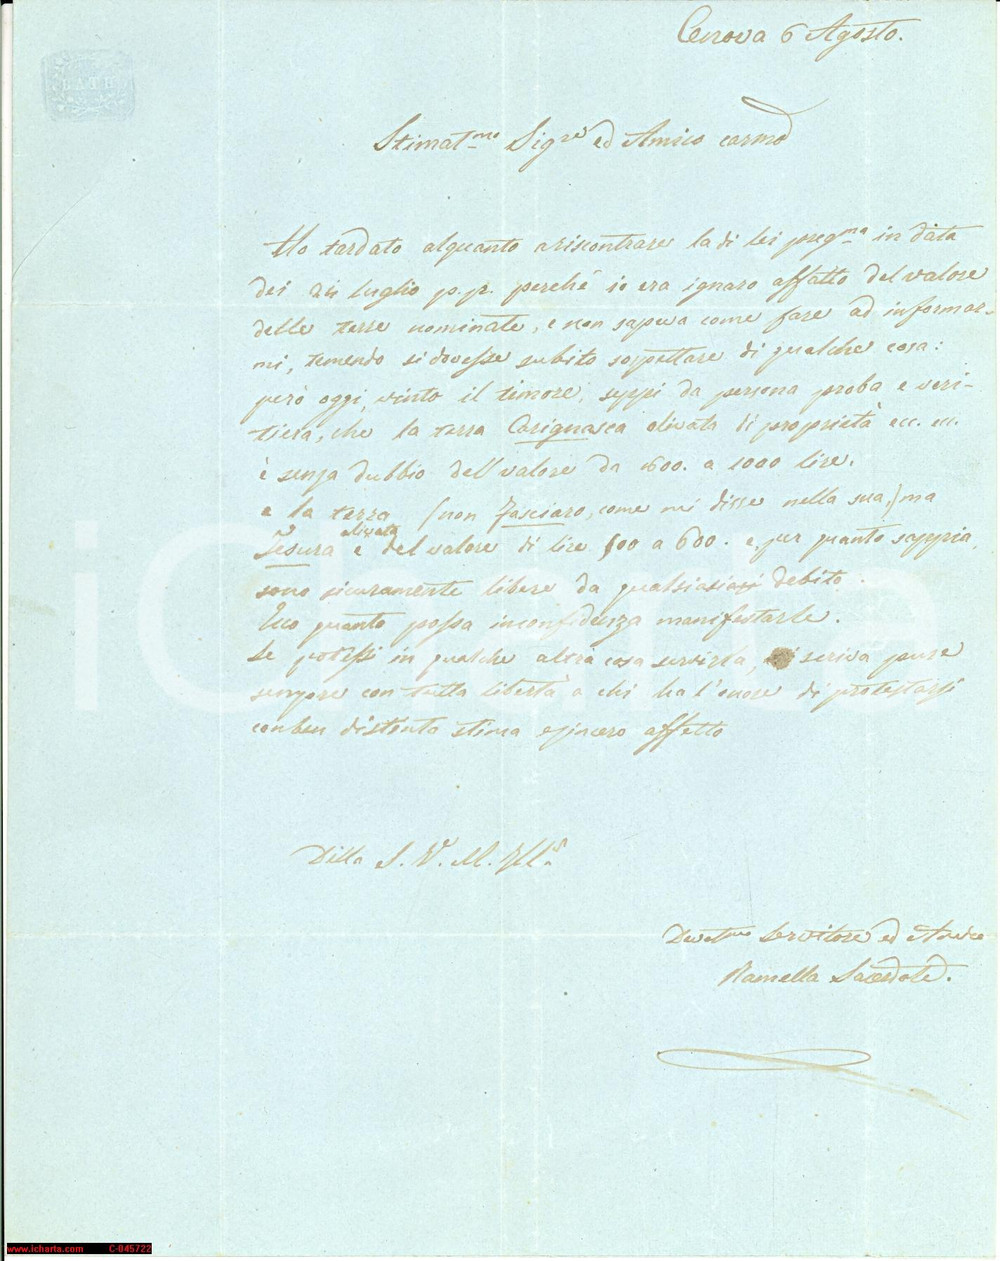 Cenova 6 Agosto.
Stimat.mo Sig.re ed Amico carmo
Ho tardato alquanto a riscontrare la di lei preg.ma in data
dei 24 luglio p.p. perchè io era ignaro affatto del valore
delle terre nominate, e non sapeva come fare ad informar-
mi, temendo si dovesse subito sospettare di qualche cosa:
però oggi, vinto il timore, seppi da persona proba e veri-
tiera, che la terra Carignasca olivata di proprietà ecc. ecc.
è senza dubbio dell valore da 600. a 1000 lire.
e la terra (non Fasciaro, come mi disse nella sua,) ma
Tesura olivata è del valore di lire 500 a 600. e, per quanto sappia,
sono sicuramente libere da qualsiasiasi debito.
Ecco quanto possa in confidenza manifestarle.
Se potessi in qualche altra cosa servirla, mi scriva pure
sempre con tutta libertà a chi ha l'onore di protestarsi
con ben distinta stima e sincero affetto
Della S. V. M. Ill.a
Devot.mo Servitore ed Amico
Ramella Sacerdote.
iCharta
www.icharta.com C-045722